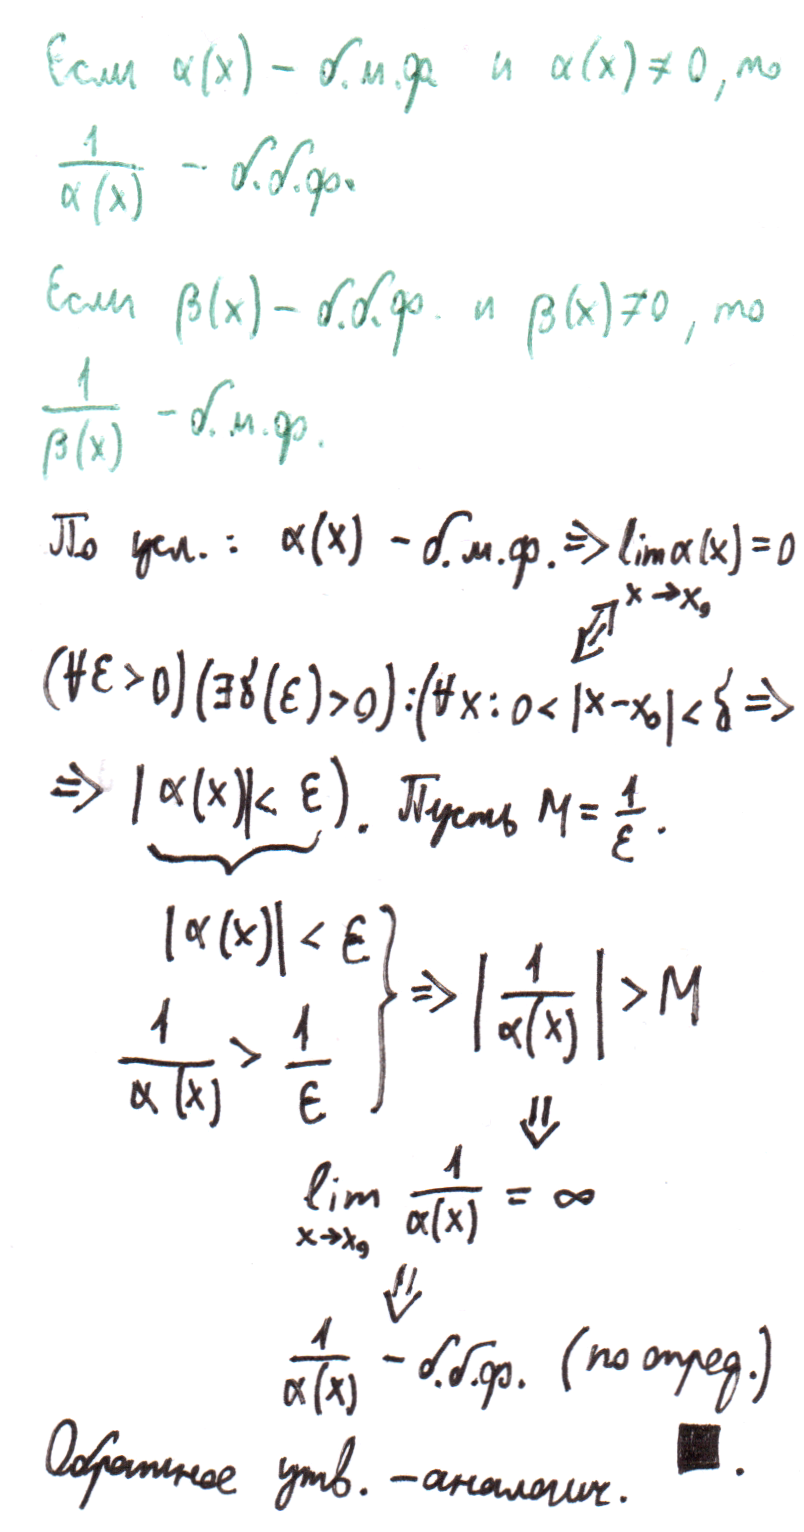 Если α(x) – б.м.ф. и α(x) ≠ 0, то
1/α(x) – б.б.ф.
Если β(x) – б.б.ф. и β(x) ≠ 0, то
1/β(x) – б.м.ф.
По усл.: α(x) – б.м.ф. => lim α(x) = 0
x→x₀
(∀ε > 0)(∃δ(ε) > 0):(∀x: 0 < |x–x₀| < δ =>
=> |α(x)| < ε). Пусть M = 1/ε.
|α(x)| < ε
1/α(x) > 1/ε } => |1/α(x)| > M
⇓
lim 1/α(x) = ∞
x→x₀
⇓
1/α(x) – б.б.ф. (по опред.)
Обратное утв. – аналогич. ■.